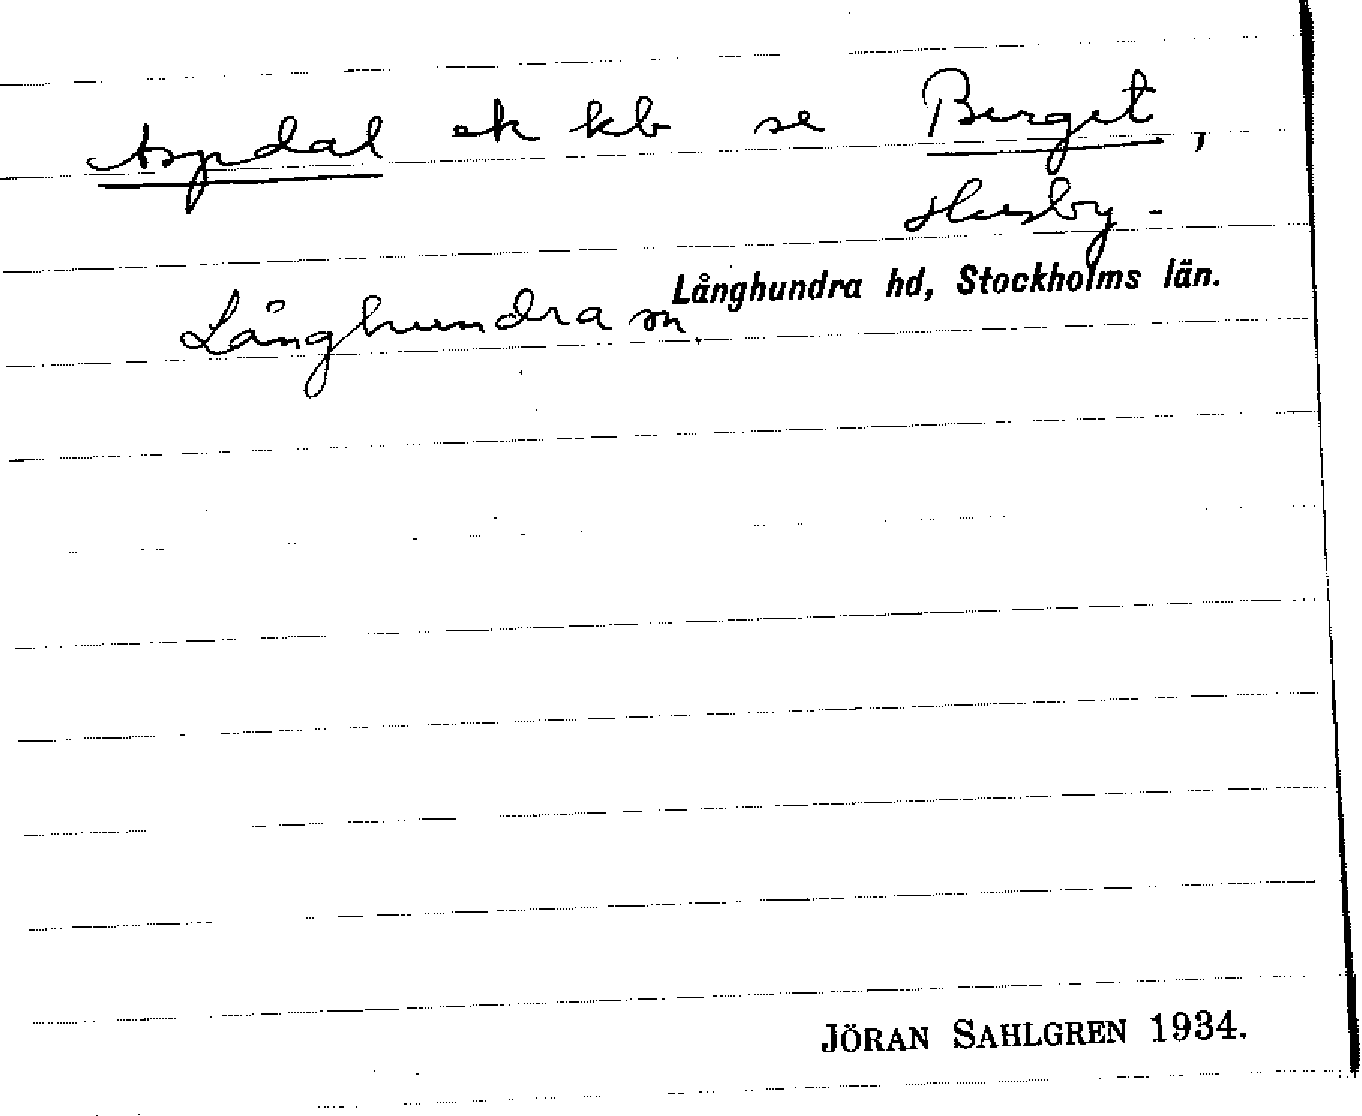 Aspdal ek kb se Berget,
Husby-
Långhundra hd, Stockholms län.
Långhundra sn
JÖRAN SAHLGREN 1934.